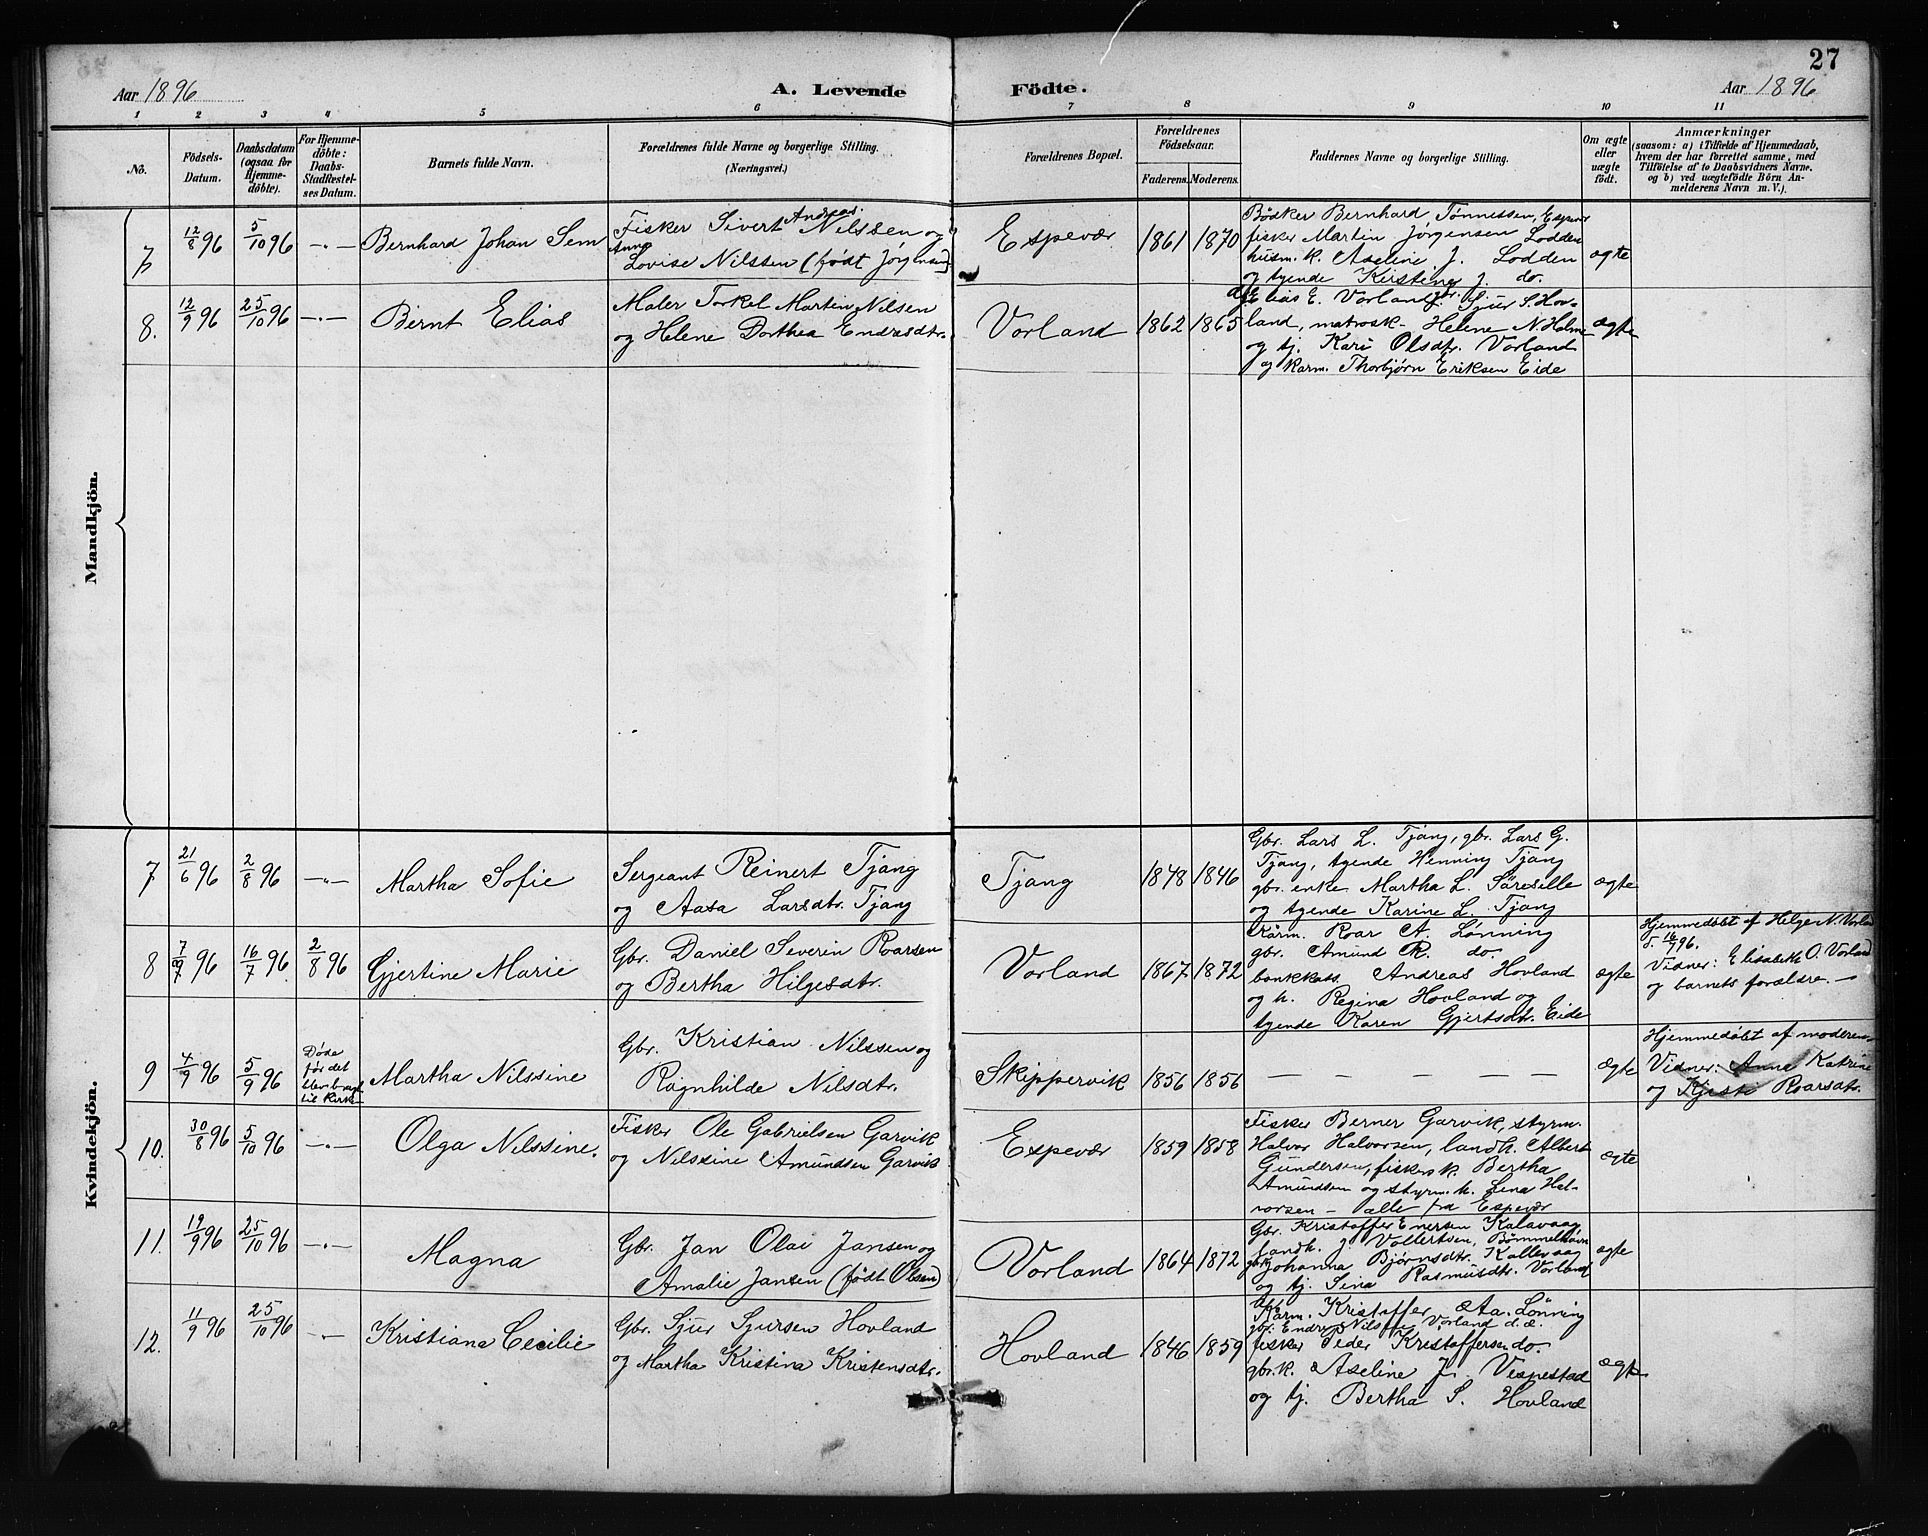 27
Aar 1896
A. Levende Födte.
Aar 1896
1 2 3 4 5 6 7 8 9 10 11
No.
Födsels-
Datum.
Daabsdatum
(ogsaa for
Hjemme-
döbte).
For Hjemme-
döbte:
Daabs-
Stadfæstel-
ses Datum.
Barnets fulde Navn.
Forældrenes fulde Navne og borgerlige Stilling.
(Næringsvei.)
Forældrenes Bopæl.
Forældrenes
Födselsaar.
Faderens. Moderens.
Faddernes Navne og borgerlige Stilling.
Om ægte
eller
uægte
födt.
Anmærkninger
(saasom: a) i Tilfælde af Hjemmedaab,
hvem der har forrettet samme, med
Tilföielse af to Daabsvidners Navne.
og b) ved uægtefödte Börn An-
melderens Navn m. V.).
Mandkjön.
7
12/8 96
5/10 96
—·—
Bernhard Johan Sem
Fisker Sivert Andreas Nilssen og
Anna
Lovise Nilssen (født Jørgensen)
Espevær
1861 1870
Bödker Bernhard Tönnessen, Espevær
fisker Martin Jørgensen Lodden
husm. k. Aseline J. Lodden
og tyende Kirstene J. do.
ægte
8.
12/9 96
25/10 96
—·—
Bernt Elias
Maler Torkel Martin Nilsen
og Helene Dorthea Endresdtr.
Vorland
1862 1865
Elias E. Vorland, gbr. Sjur S. Hov-
land, matrosk. Helene N. Holme
og tj. Kari Olsdtr. Vorland
og karm. Thorbjørn Eriksen Eide
ægte
Kvindekjön.
7
21/6 96
2/8 96
—"—
Martha Sofie
Sergeant Reinert Tjang
og Aasa Larsdtr. Tjang
Tjang
1848 1846
Gbr. Lars L. Tjang, gbr. Lars G.
Tjang, tyende Henning Tjang
gbr. enke Martha L. Søresille
og tyende Karine L. Tjang
ægte
8
7/7 96
16/7 96
2/8 96
Gjertine Marie
Gbr. Daniel Severin Roarsen
og Bertha Hilgesdtr.
Vorland
1867 1872
Kårm. Roar A. Lønning
gbr. Amund R. do.
bankkass. Andreas Hovland
og h. Regina Hovland og
tyende Karen Gjertsdtr. Eide
ægte
Hjemmedøbt af Helge N. Vorland
d. 16/7 96.
Vidner: Elisabeth O. Vorland
og barnets forældre. —
9
4/9 96
5/9 96
Døde
før det
blev bragt
til Kirke
Martha Nilssine
Gbr. Kristian Nilssen og
Ragnhilde Nilsdtr.
Skippervik
1856 1856
— — — — —
ægte
Hjemmedøbt af moderen
Vidner: Anna Katrine
og Kjersti Roarsdtr.
10.
30/8 96
5/10 96
—·—
Olga Nilssine.
Fisker Ole Gabrielsen Garvik
og Nilssine Amundsen Garvik
Espevær
1859 1858
Fisker Berner Garvik, styrm.
Halvor Halvorsen, landh. Albert
Gundersen, fisker k. Bertha
Amundsen og styrm. h. Lina Hal-
vorsen — alle fra Espevær
ægte
11.
19/9 96
25/10 96
—·—
Magna
Gbr. Jan Olai Jansen og
Amalie Jansen (født Olsen)
Vorland
1864 1872
Gbr. Kristoffer Enersen Kalavaag,
landh. J. Vollertsen, Bömmelhavn
Johanna Bjørnsdtr. Kallevaag
og tj. Sina Rasmusdtr. Vorland
ægte
12.
11/9 96
25/10 96
—·—
Kristiana Cecilie
Gbr. Sjur Sjursen Hovland
og Martha Kristina Kristensdtr.
Hovland
1846 1859
Karm. Kristoffer Aa. Lönning
gbr. Endre Nilssen Vorland d. æ.
fisker Peder Kristoffersen do.
gbr. k. Aseline J. Vespestad
og tj. Bertha S. Hovland
ægte